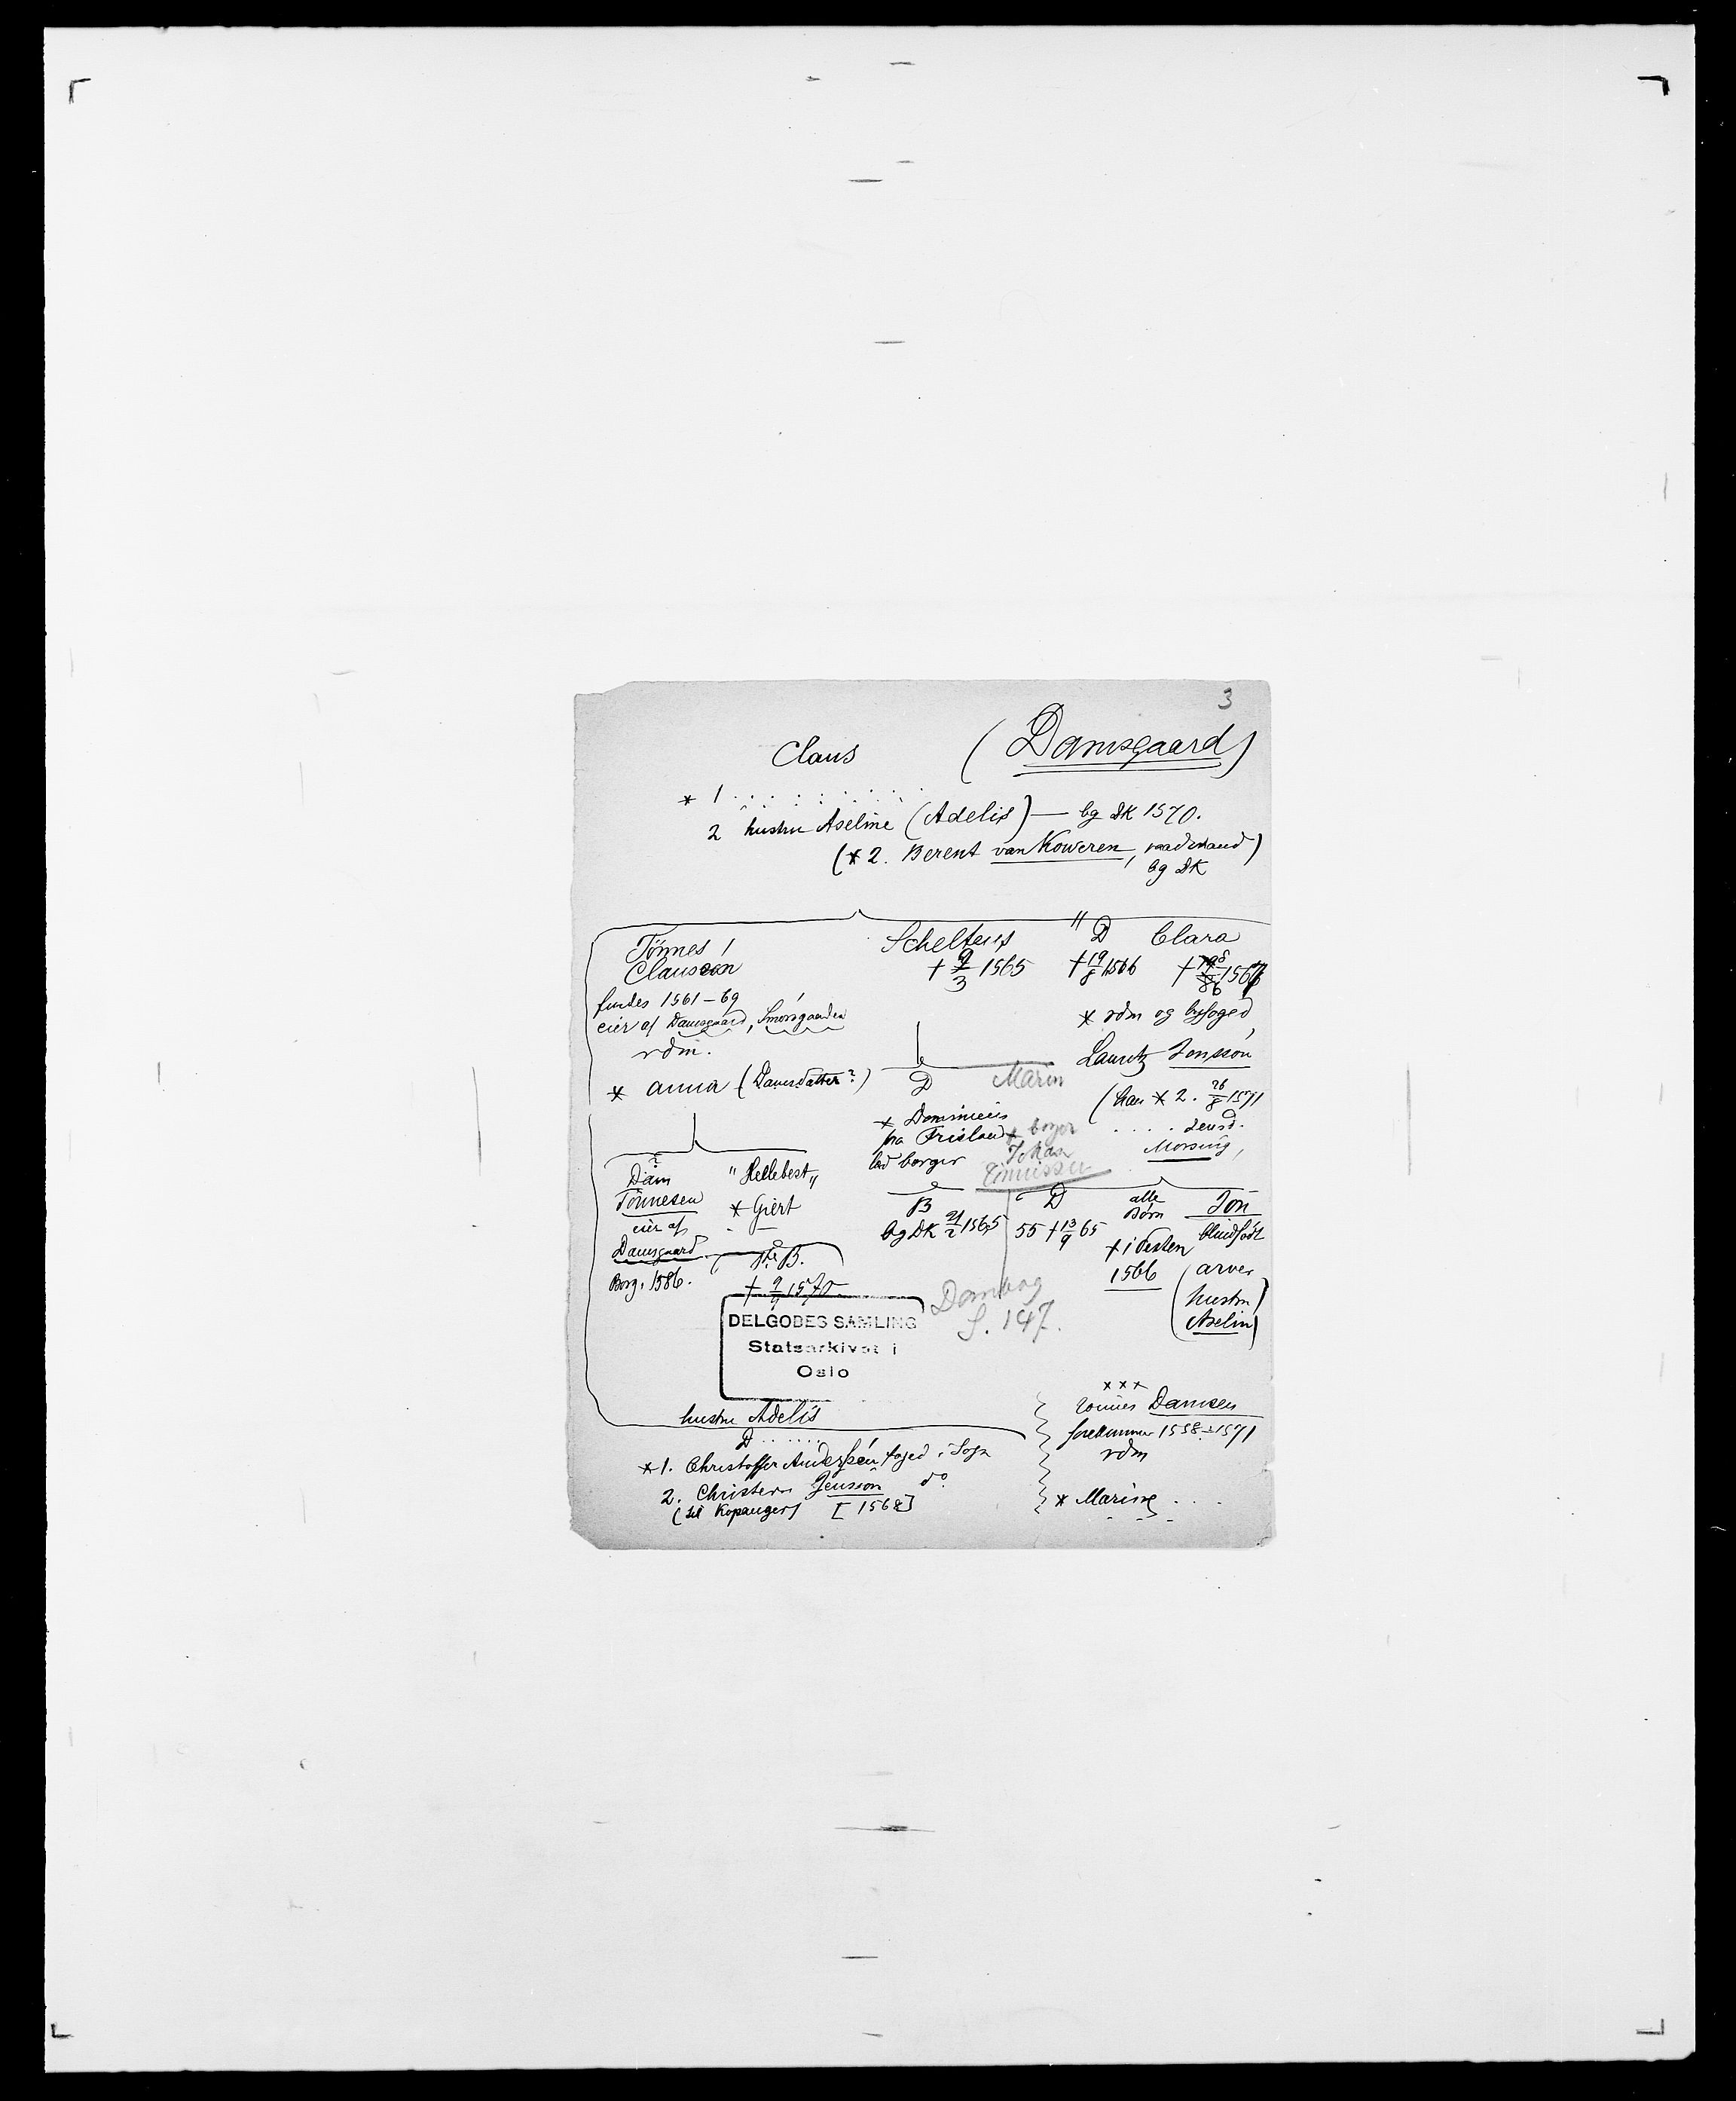 3
Claus (Damsgaard)
* 1 . . . . . . . . .
2 hustru Aseline (Adelis) — bg DK 1570.
(* 2. Berent van Koweren, raadmand)
bg DK
Tönnes Clausson
findes 1561-69
eier af Damsgaard, Smörsgaarden
rdm.
* Anna (Damsdatter?)
Scheltens
† 9/3 1565
" D
† 19/8 1566
Clara
* rdm og byfoged
Lauritz Jonsson
(han * 2. 26/8 1571
. . . . Jensd.
Morsing,
D
* Dominicus
fra Frisland
bad borger
Marin
* borger
Johan
Tönnissen
?
Dam
Tönnesen
eier af
Damsgaard
Borg. 1586.
"Hellebest"
* Giert
- —
B.
† 9/9 1570
B
bg DK 21/2 1565
D
55 † 13/9 65
alle Børn
† i Pesten
1566
Jon
blindfödt
(arver
hustru
Aselin)
Damborg
S. 147.
DELGOBES SAMLING
Statsarkivet i
Oslo
hustru Adelis
D . . . . . .
*1. Christoffer Anderssön foged i Sogn
2. Christern Jensson do.
(til Kopanger) [1568]
x x x
Tönnes Damsen
forekommer 1558-1571
rdm
* Marine . . . .